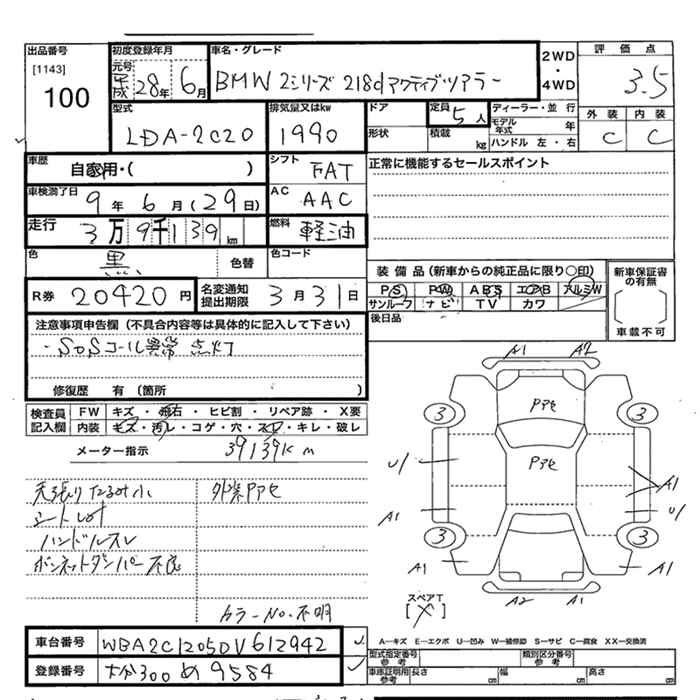 出品番号
[1143]
100
初度登録年月
元号
平成 28年 6月
車名・グレード
BMW 2シリーズ 218d アクティブツアラー
2WD
・
4WD
評価点
3.5
外装 内装
C C
型式
LDA-2C20
排気量又はkw
1990
ドア
形状
定員
5人
積載
kg
ディーラー・並行
モデル年式 年
ハンドル 左・右
車歴
自家用・( )
シフト
FAT
正常に機能するセールスポイント
車検満了日
9年 6月(29日)
AC
AAC
走行
3万9千139km
燃料
軽油
色
黒
色替
色コード
R券
20420円
名変通知
提出期限
3月31日
装備品(新車からの純正品に限り○印)
P/S PW ABS エアB アルミW
サンルーフ ナビ TV カワ
後日品
新車保証書
の有無
車載不可
注意事項申告欄(不具合内容等は具体的に記入して下さい)
・SOSコール異常 点灯
修復歴 有(箇所 )
検査員
記入欄
FW キズ・飛石・ヒビ割・リペア跡・X要
内装 キズ・汚レ・コゲ・穴・スレ・キレ・破レ
メーター指示 39139Km
天張りたるみ小 外装Pアセ
シートしわ
ハンドルスレ
ボンネットダンパー不良
カラーNo.不明
A1 A2
Pアセ
3 3
Pアセ
U1
A1
A1
U1
3 3
A1 A1
A2 A1
スペアT
車台番号
WBA2C12050V612942
登録番号
大分300 め 9584
A―キズ E―エクボ U―凹み W―補修跡 S―サビ C―腐食 XX―交換済
型式指定番号
参考
類別区分番号
参考
車庫証明用
参考
長さ cm
幅 cm
高さ cm